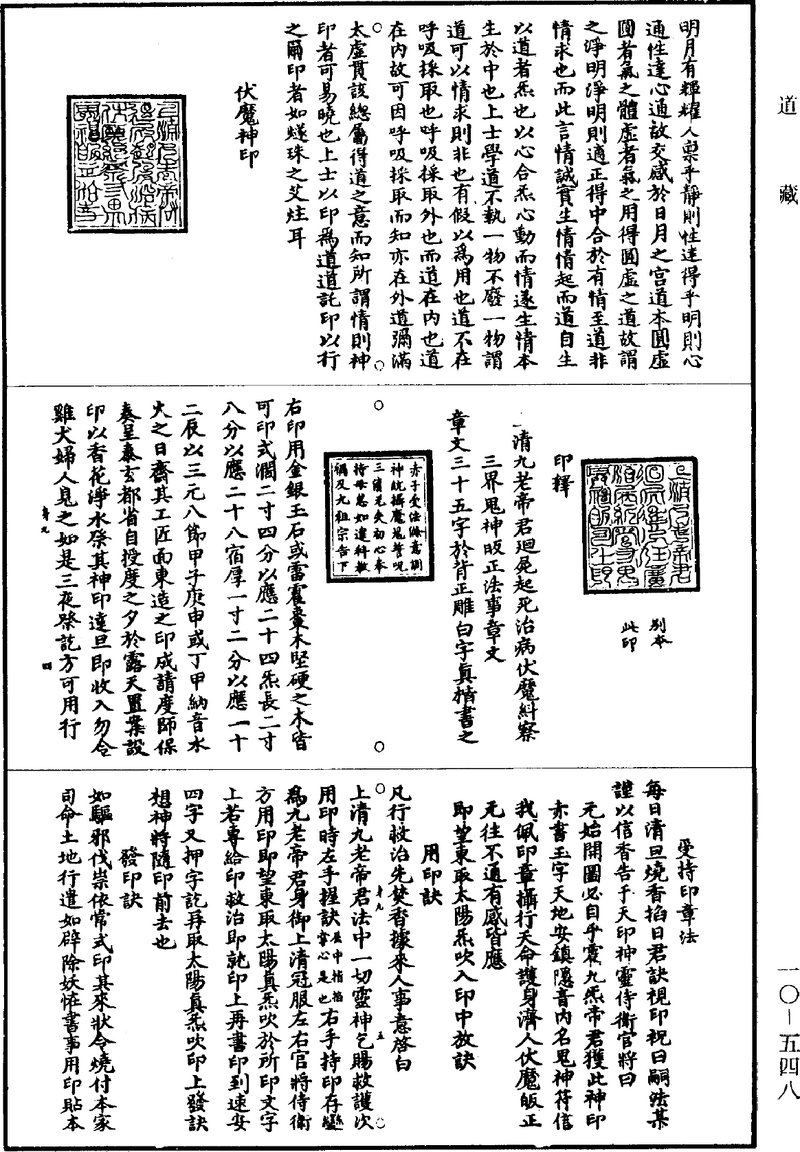 道藏
明月有輝耀人稟乎靜則性達得乎明則心
通性達心通故交感於日月之宮道本圓虛
圓者炁之體虛者炁之用得圓虛之道故謂
之淨明淨明則適正得中合於有情至道非
情求也而此言情誠實生情情起而道自生
以道者炁也以心合炁心動而情遂生情本
生於中也上士學道不執一物不廢一物謂
道可以情求則非也有假以為用也道不在
呼吸採取也呼吸採取外也而道在內也道
在內故可因呼吸採取而知亦在外道彌滿
太虛貫該總屬得道之意而知所謂情則神
印者可易曉也上士以印為道道託印以行
之爾印者如燧珠之艾炷耳
伏魔神印
別本
此印
印釋
上清九老帝君迴屍起死治病伏魔糾察
三界鬼神皈正法事章文
章文三十五字於背正雕白字真楷書之
赤子受法
神
三 初心奉
持毋怠如違科教
禍及九祖宗告下
右印用金銀玉石或雷霍棗木堅硬之木皆
可印式濶二寸四分以應二十四炁長二寸
八分以應二十八宿厚一寸二分以應一十
二辰以三元八節甲子庚申或丁甲納音水
火之日齋其工匠面東造之印成請度師保
奏呈泰玄都省自授度之夕於露天置案設
印以香花淨水祭其神印達旦即收入勿令
雞犬婦人見之如是三夜祭訖方可用行
四
受持印章法
每日清旦燒香掐日君訣視印祝曰嗣法某
謹以信香告于天印神靈侍衛官將曰
元始開圖必自乎震九炁帝君獲此神印
赤書玉字天地安鎮隱音內名鬼神符信
我佩印章攝行天命護身濟人伏魔皈正
无往不通有感皆應
即望東取太陽炁吹入印中放訣
用印訣
凡行救治先焚香據來人事意啓白
上清九老帝君法中一切靈神乞賜救護次
用印時左手握訣屈中指掐掌心是也右手持印存變
為九老帝君身御上清冠服左右官將侍衛
方用印即望東取太陽真炁吹於所印文字
上若專給印救治即就印上再書印到速安
四字又押字訖再取太陽真炁吹印上發訣
想神將隨印前去也
五
發印訣
如驅邪伐祟依常式印其來狀令燒付本家
司命土地行遣如辟除妖怪書事用印貼本
一〇—五四八